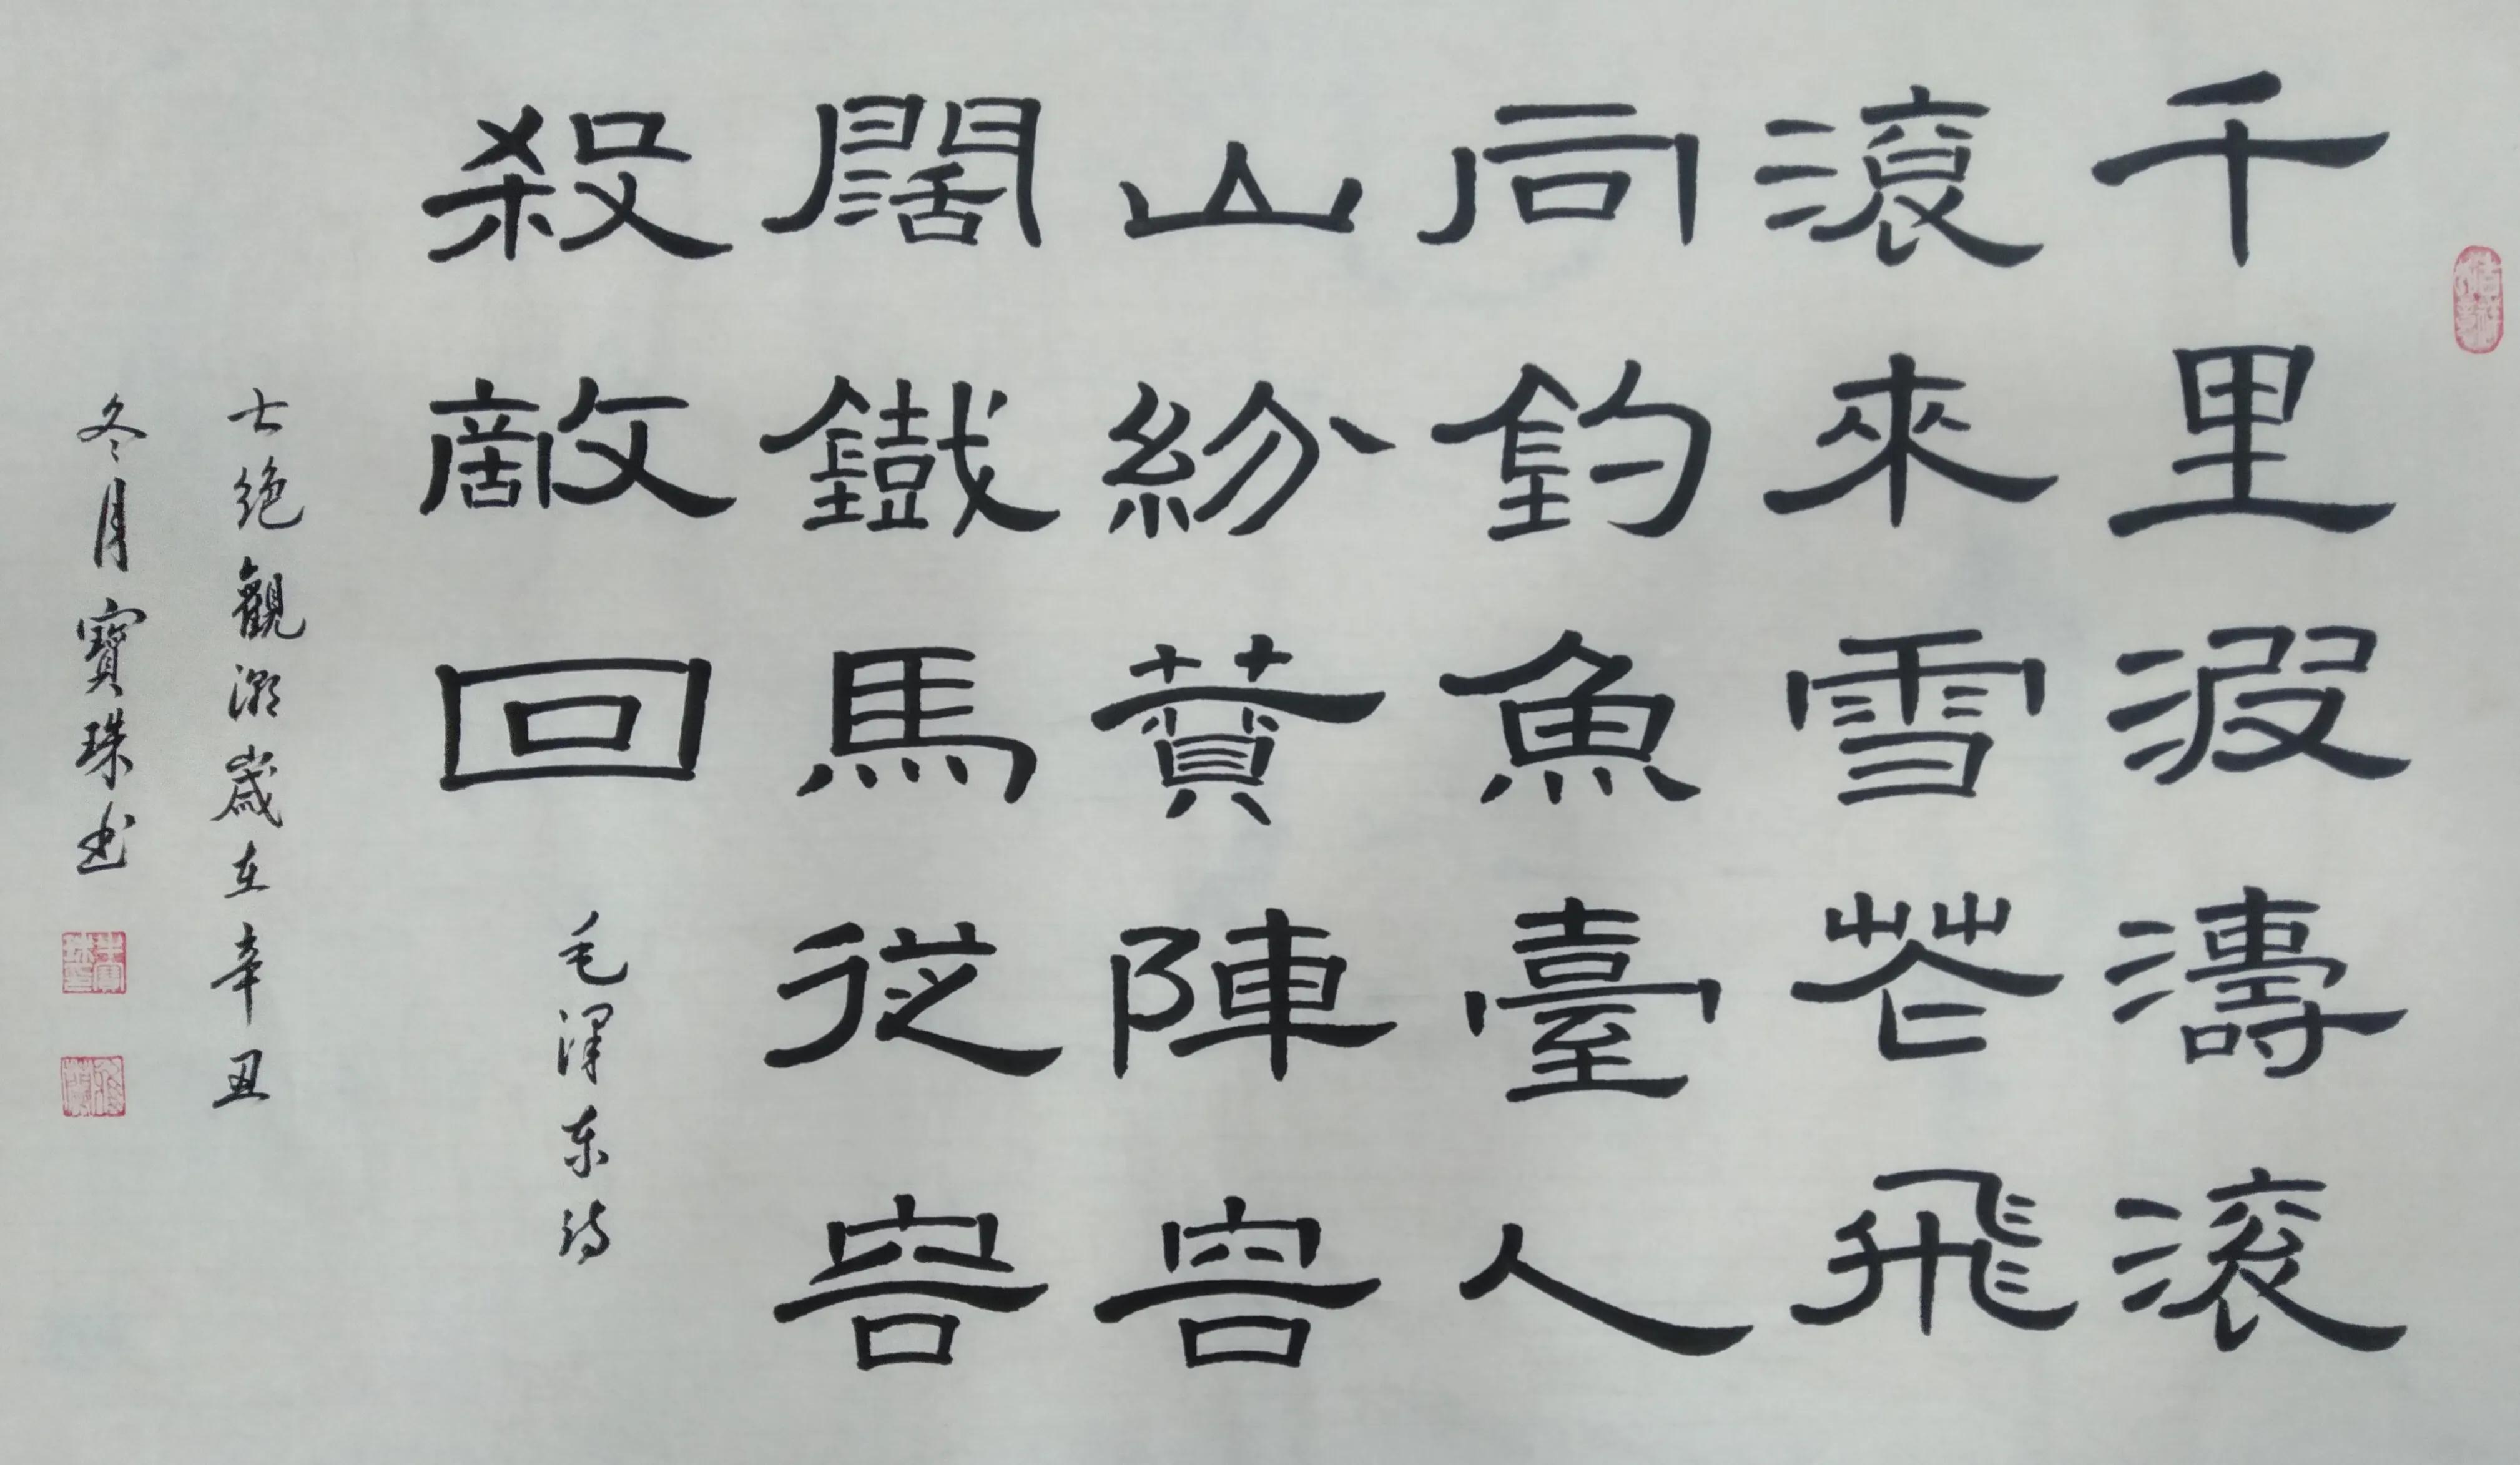 千里波濤滾
滾來雪花飛
向釣魚臺人
山紛贊陣容
闊鐵馬從容
殺敵回
毛澤东诗
七绝觀潮歲在辛丑
冬月寶珠书